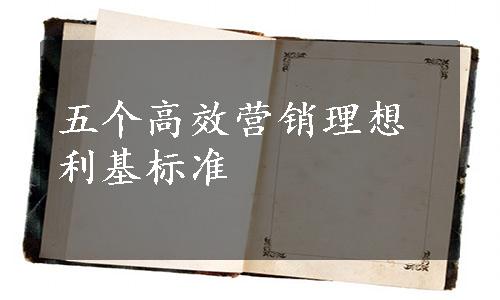 五个高效营销理想
利基标准